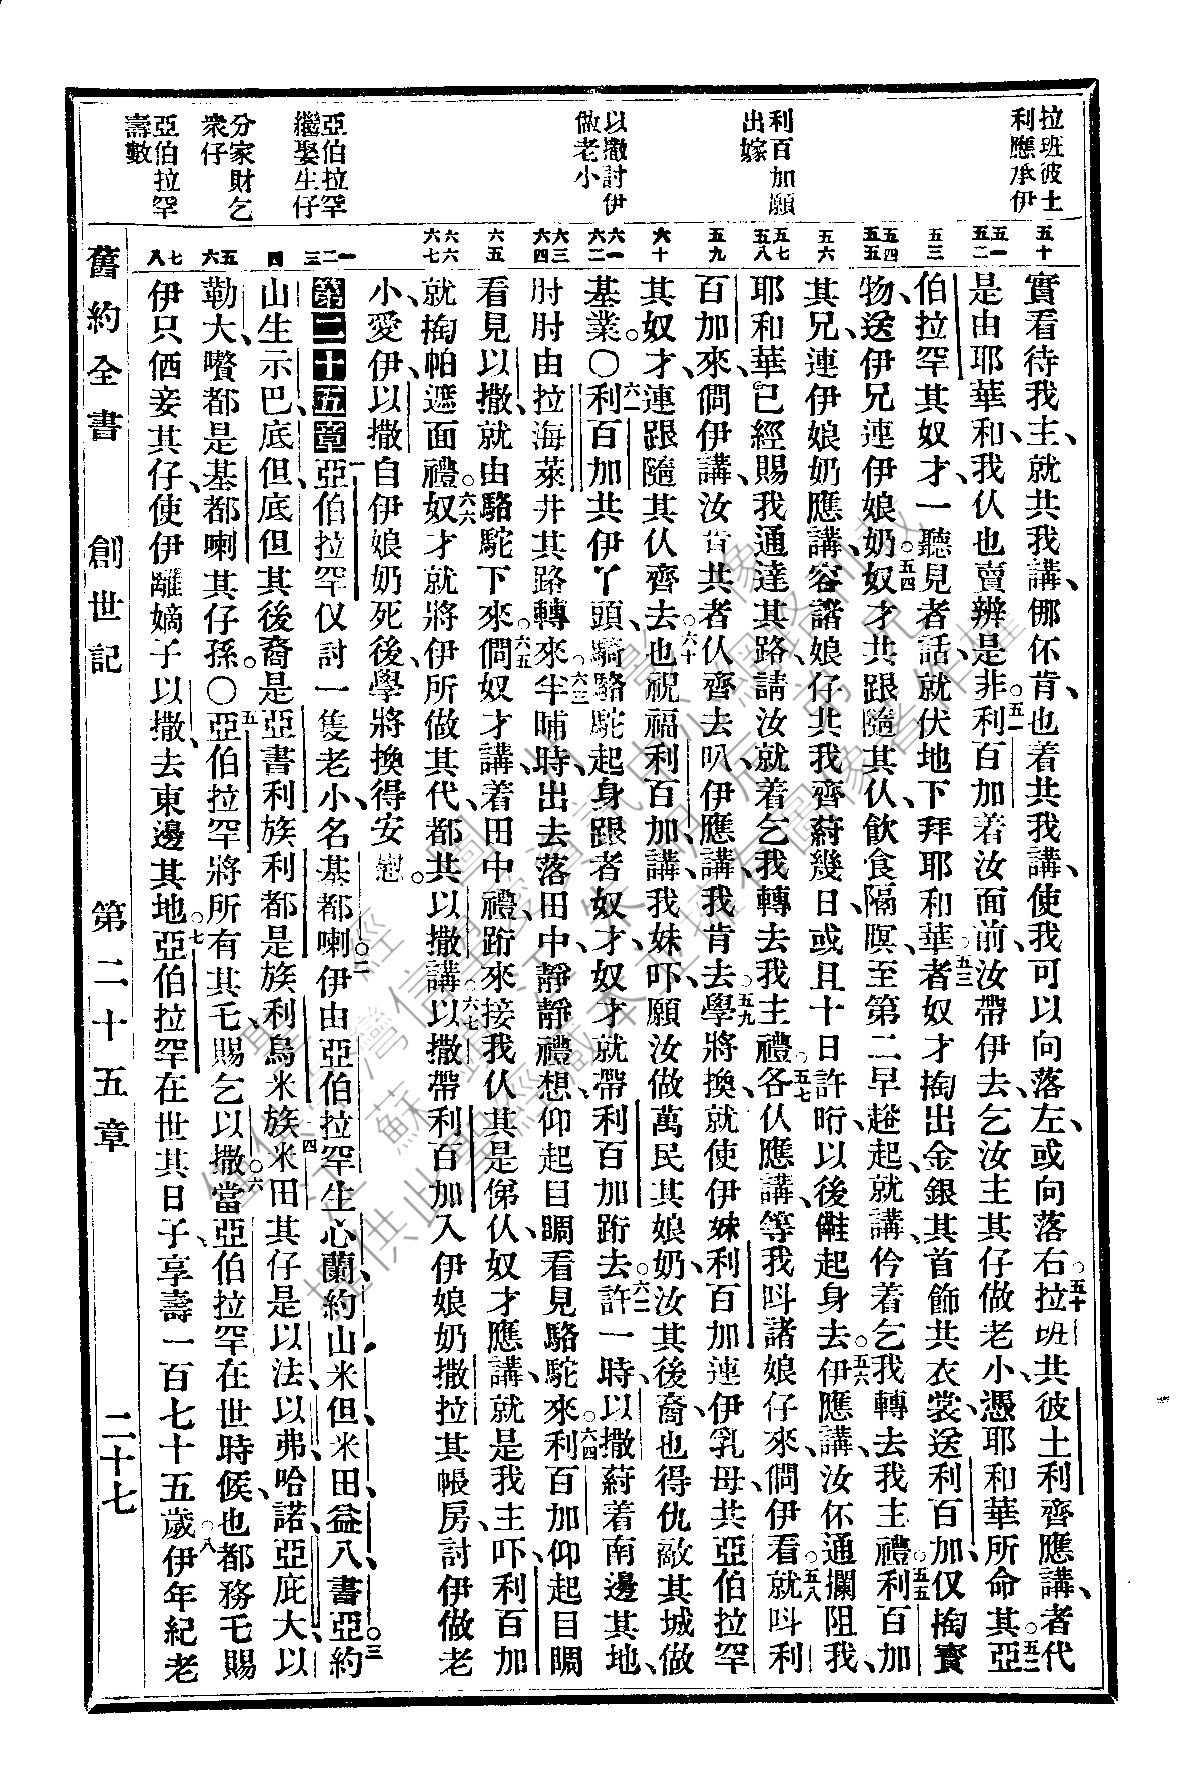 拉班彼土
利應承伊
利百加願
出嫁
以撒討伊
做老小
亞伯拉罕
繼娶生仔
分家財乞
衆仔
亞伯拉罕
壽數
五十
五一
五二
五三
五四
五五
五六
五七
五八
五九
六十
六一
六二
六三
六四
六五
六六
六七
一
二
三
四
五
六
七
八
實看待我主、就共我講、㑚伓肯、也着共我講、使我可以向落左、或向落右。五十拉班共彼土利齊應講、者代
是由耶華和、我仈也賣辨是非。五一利百加着汝面前、汝帶伊去、乞汝主其仔做老小、憑耶和華所命其。五二亞
伯拉罕其奴才、一聽見者話、就伏地下拜耶和華。五三者奴才掏出金銀其首飾共衣裳、送利百加、仅掏寶
物、送伊兄連伊娘奶。五四奴才共跟隨其仈、飲食隔暝、至第二早趕起就講、伶着乞我轉去我主禮。五五利百加
其兄、連伊娘奶應講、容諸娘仔共我齊蔚幾日、或且十日許、行以後僅起身去。五六伊應講、汝伓通攔阻我、
耶和華已經賜我通達其路、請汝就着乞我轉去我主禮。五七各仈應講、等我叫諸娘仔來、㗂伊看。五八就叫利
百加來、㗂伊講、汝肯共者仈齊去叭、伊應講、我肯去。五九學將換、就使伊妹利百加連伊乳母、共亞伯拉罕
其奴才、連跟隨其仈齊去。六十也祝福利百加講、我妹吓、願汝做萬民其娘奶、汝其後裔也得仇敵其城做
基業。〇六一利百加共伊丫頭、騎駱駝起身跟者奴才、奴才就帶利百加跨去。六二許一時、以撒蔚着南邊其地、
肘肘由拉海萊井其路轉來。六三半晡時、出去落田中靜靜禮想、仰起目睭看見駱駝來。六四利百加仰起目睭
看見以撒、就由駱駝下來。六五㗂奴才講、着田中禮跨來接我仈其是倽仈、奴才應講、就是我主吓、利百加
就掏帕遮面禮。六六奴才就將伊所做其代、都共以撒講。六七以撒帶利百加入伊娘奶撒拉其帳房、討伊做老
小、愛伊、以撒自伊娘奶死後、學將換得安慰。
第二十五章 一亞伯拉罕仅討一隻老小、名基都喇。二伊由亞伯拉罕生心蘭、約山、米但、米田、益八、書亞。三約
山生示巴、底但、底但其後裔是亞書利族、利都是族、利烏米族。四米田其仔是以法、以弗、哈諾、亞庇大、以
勒大、嚽都是基都喇其仔孫。〇五亞伯拉罕將所有其乇、賜乞以撒。六當亞伯拉罕在世時候、也都務乇賜
伊只俩妾其仔、使伊離嫡子以撒、去東邊其地。七亞伯拉罕在世其日子、享壽一百七十五歲。八伊年紀老
舊約全書 創世記 第二十五章 二十七